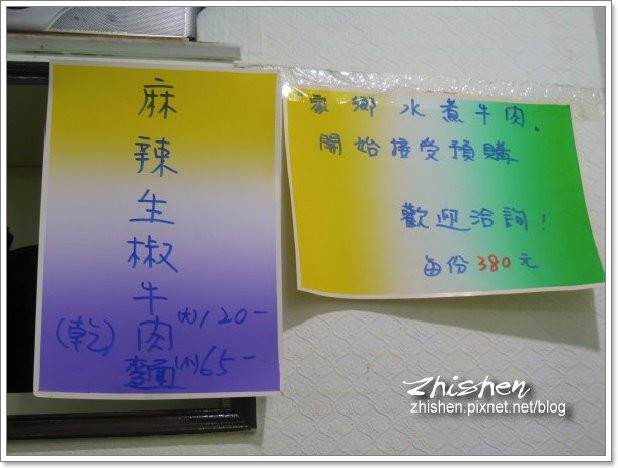 麻辣生椒牛肉麵
(乾)
(大)120-
(小)65-
家鄉水煮牛肉,
開始接受預購
歡迎洽詢!
每份380元
Zhishen
zhishen.pixnet.net/blog